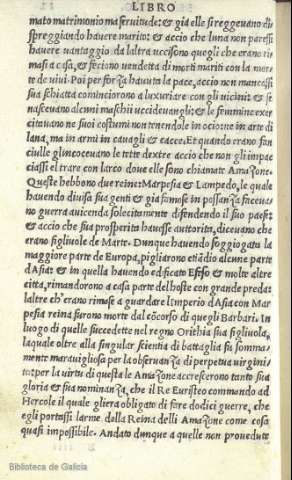 LIBRO
mato matrimonio ma seruitude: & gia elle si reggevano di
spreggiando havere marito: & accio che luna non paressi
havere vantaggio da laltra uccisono quegli che erano ri
masi a casa, & feciono vendetta di morti mariti con la mor
te de vivi. Poi per forza havuta la pace, accio non mancassi
sua schiatta cominciorono a luxuriare con gli vicini: & se
nascevano alcuni maschii uccidevangli: & le femmine exer
citavano ne suoi costumi non tenendole in ocio ne in arte di
lana, ma in armi in cavagli & cacce. Et quando erano fan
ciulle glincocevano le titte dextre accio che non gli impac
ciassi el trare con larco dove elle sono chiamate Amazone.
Queste hebbono due reine: Marpesia & Lampedo, le quale
havendo divisa sua genti & gia famose in possanza facevá
no guerra a vicenda solecitamente difendendo il suo paese:
& accio che sua prosperita havesse auttorita, diceuano che
erano figliuole de Marte. Dunque havendo soggiogata la
maggiore parte de Europa, pigliarono etiádio alcune parte
d'Asia: & in quella havendo edificato Efeso & molte altre
citta, rimandorono a casa parte delhoste con grande preda:
laltre ch'erano rimase a guardare limperio d'Asia con Mar
pesia reina furono morte dal cócorso di quegli Barbari. In
luogo di quelle succedette nel regno Orithia sua figliuola,
la quale oltre alla singular scientia di battaglia fu somma=
mente maravigliosa per la observanza di perpetua virgini
ta: per la virtu di questa le Amazone accrescerono tanto sua
gloria & sua nominanza, che il Re Euristeo commando ad
Hercole il quale gliera obligato di fare dodici guerre, che
egli portassi larme dalla Reina delli Amazone come cosa
quasi impossibile. Andato dunque a quelle non provedute
Biblioteca de Galicia